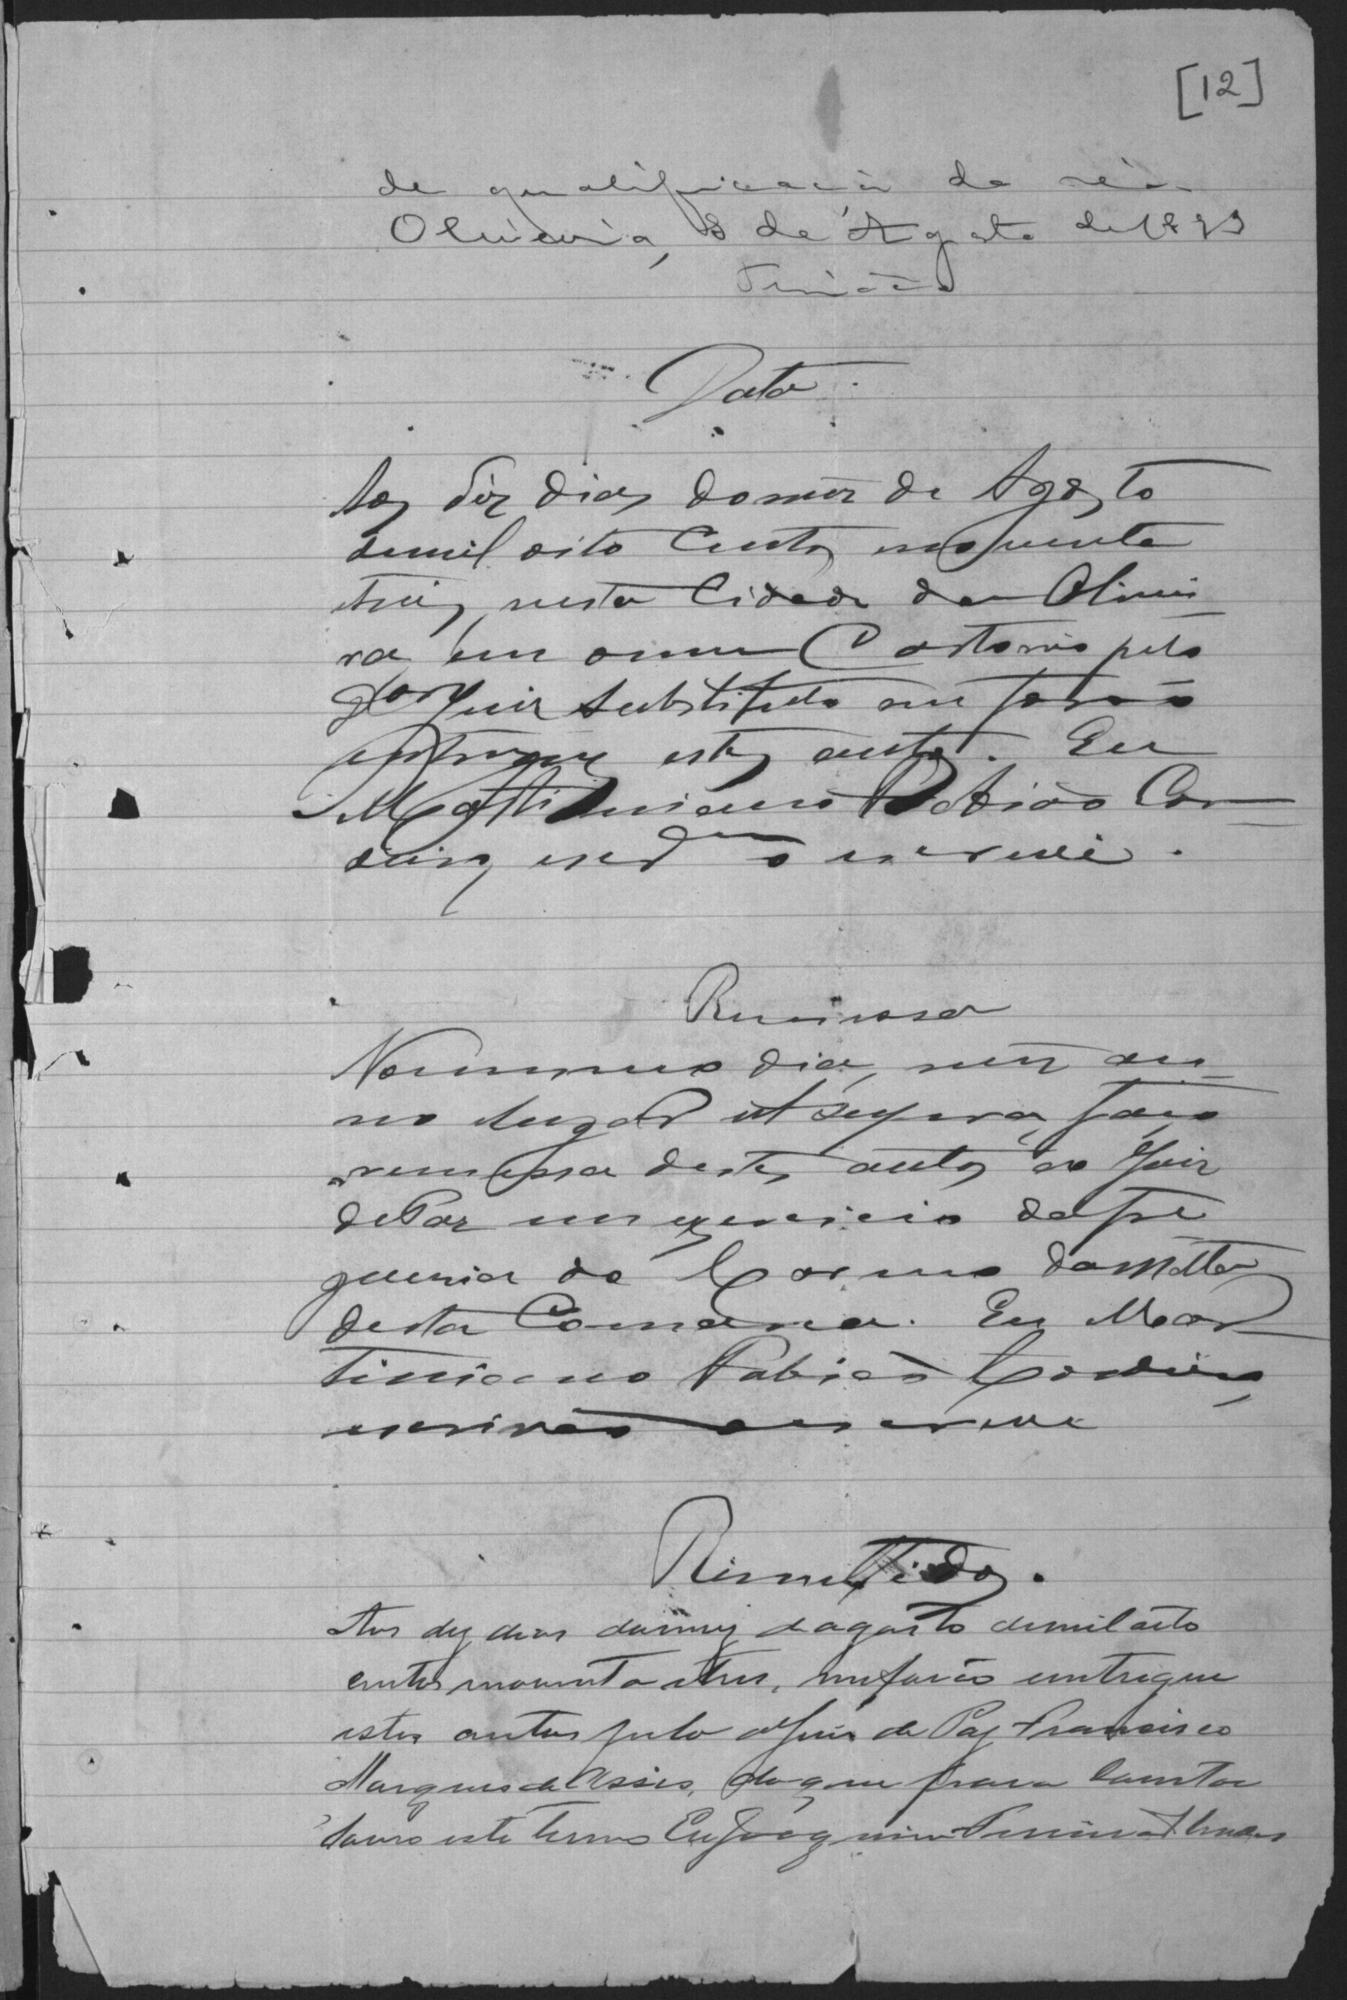 [12]
de qualificação do réo
Oliveira, 8 de Agosto de 1893
Data
Aos dez dias do mez de Agosto
de mil oito centos noventa
e trez, nesta Cidade de Olivei
ra, em o meu Cartorio pelo
Juiz Substituto me forão
entregues estes autos. Eu
Martiniano Fabião Cor
escrm o escrevi.
Remessa
No mesmo dia, mez an
no lugar ut supra, faço
remessa destes autos ao Juiz
de Paz em exercicio da fre
guezia do Carmo da Matta
desta Comarca. Eu Mar
tiniano Fabião
escrivão o escrevi
Remettidos.
Aos dez dias do mez de agosto de mil oito
centos noventa e tres, me forão entregue
estes autos pelo Juiz de Paz Francisco
Marques de Assis, do que para constar
lavro este termo Eu Joaquim